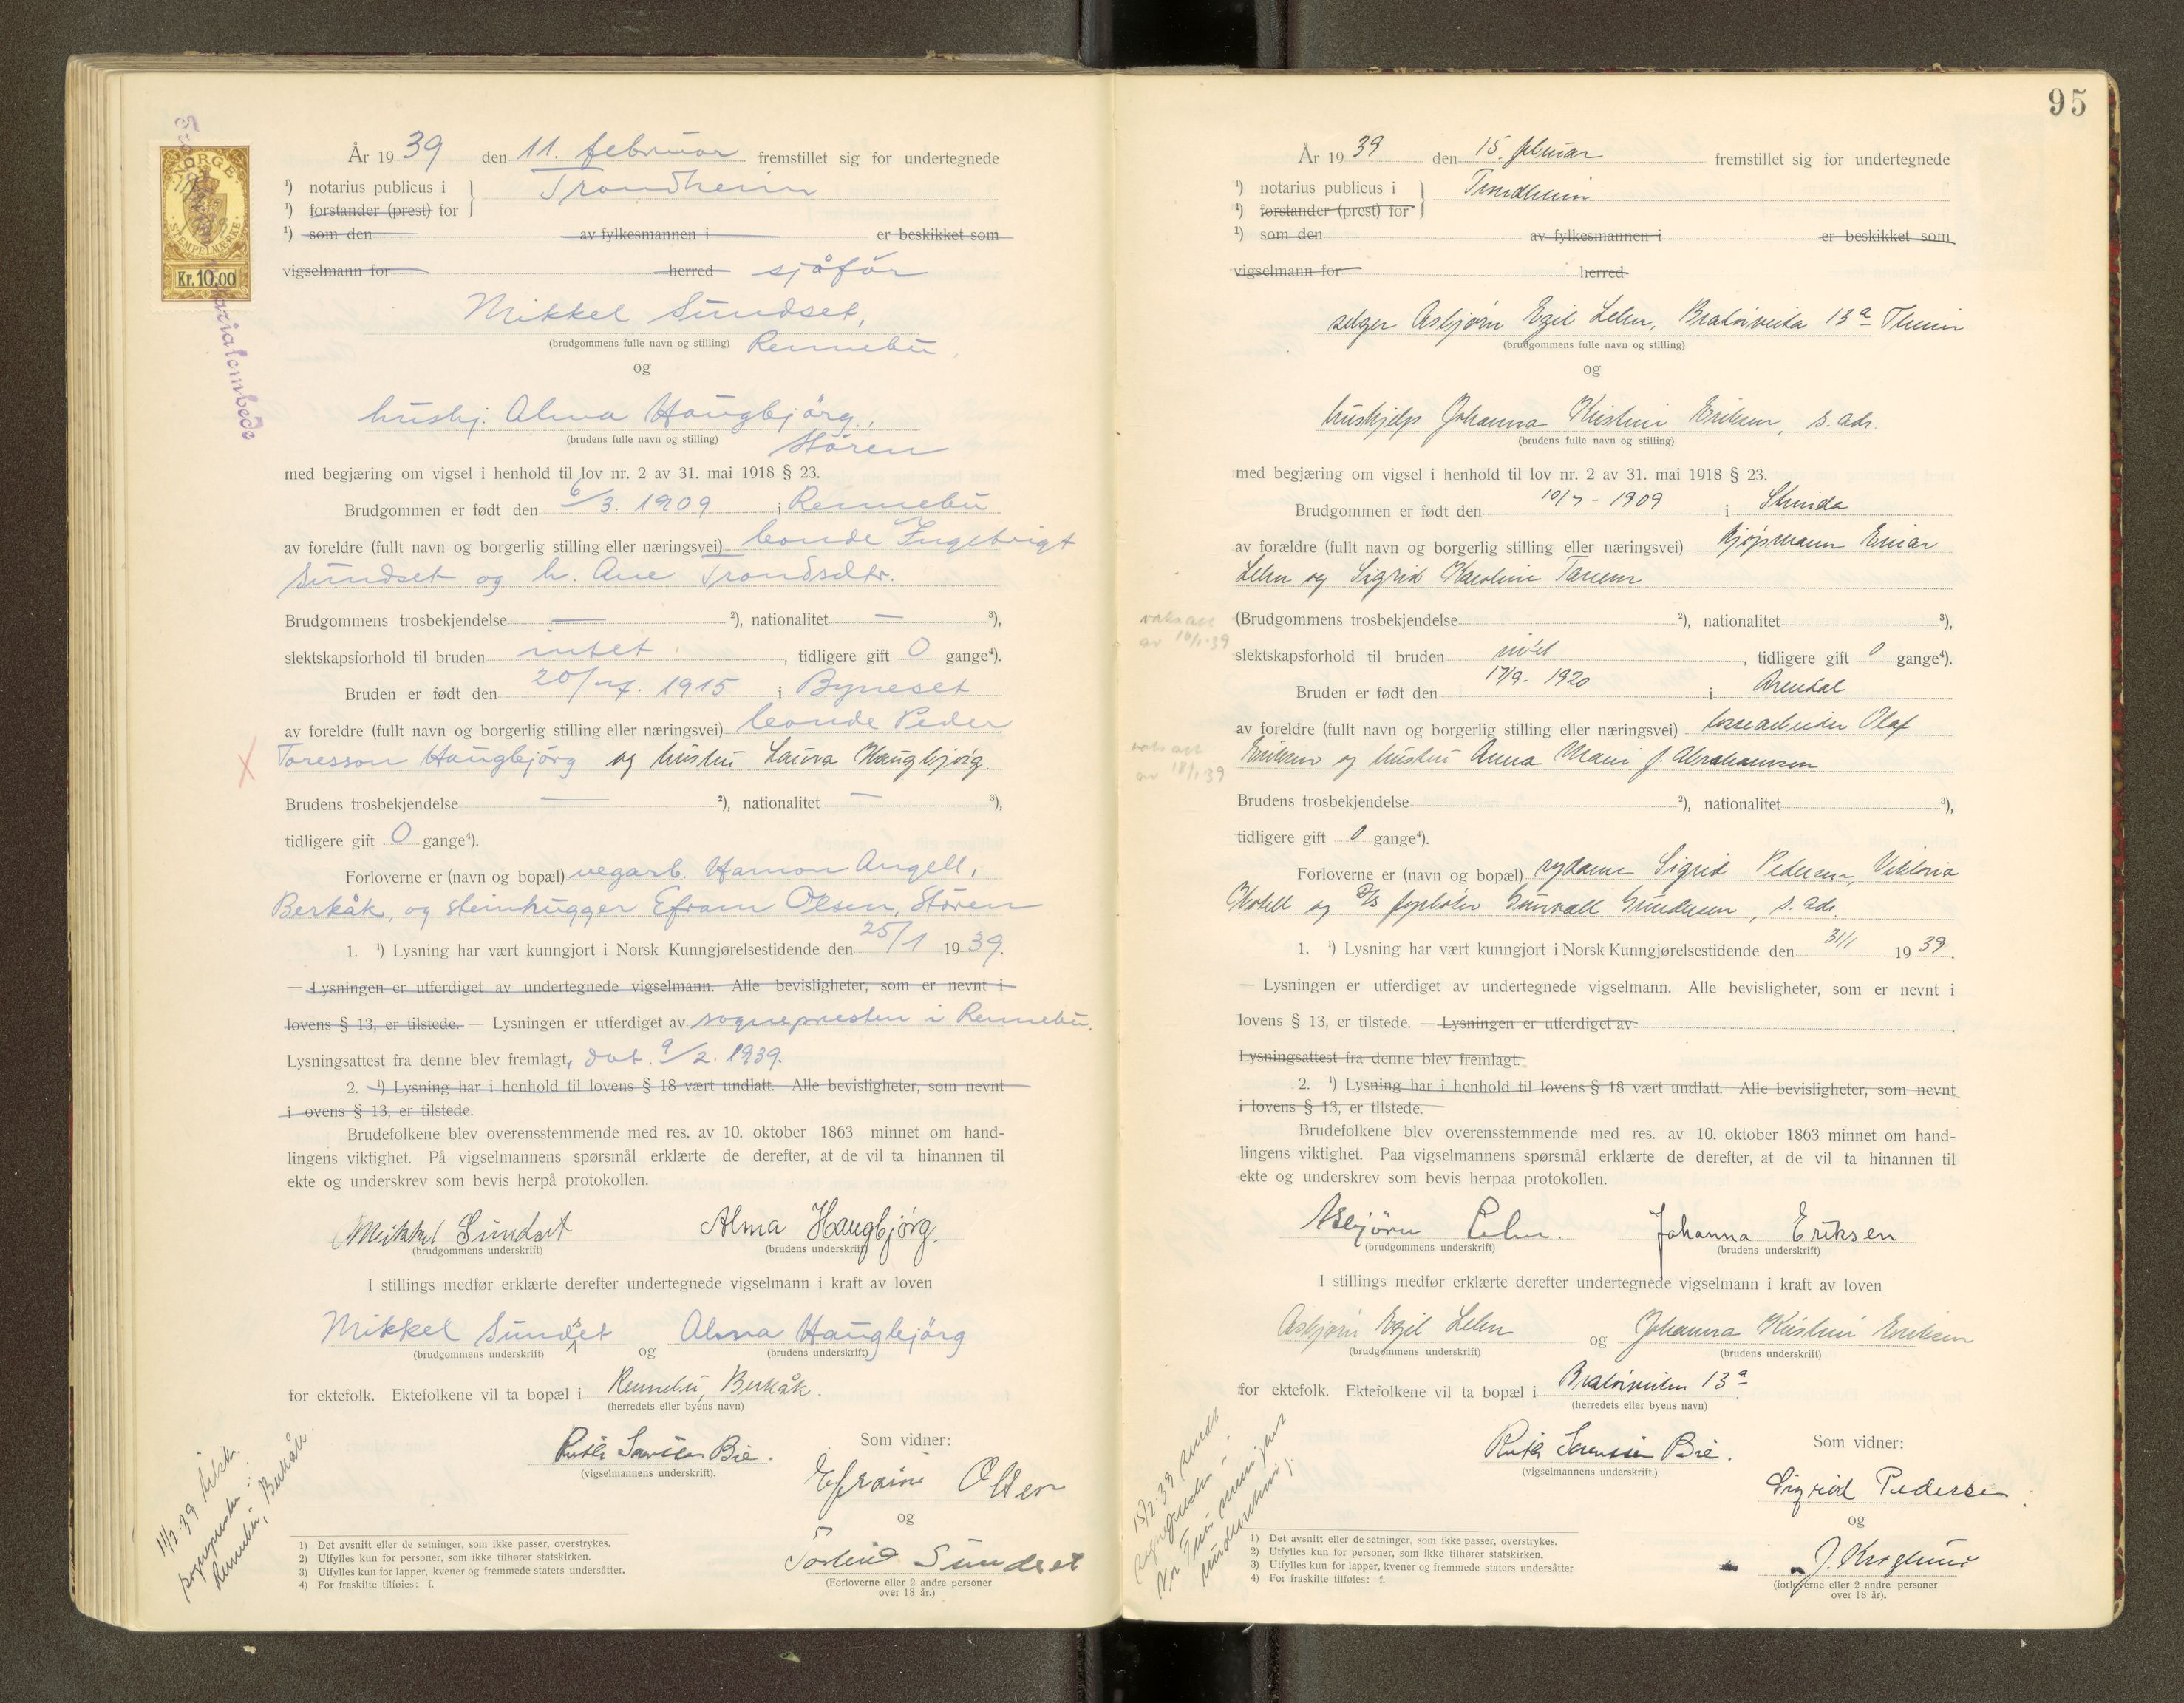 NORGE
STEMPELMERKE
Kr. 10.00
År 1939 den 11. februar fremstillet sig for undertegnede
¹) notarius publicus i Trondheim
¹) forstander (prest) for
¹) som den av fylkesmannen i er beskikket som
vigselmann for herred sjåfør
Mikkel Sundset,
(brudgommens fulle navn og stilling) Rennebu
og
hushj. Alma Haugbjörg,
(brudens fulle navn og stilling)
Stören
med begjæring om vigsel i henhold til lov nr. 2 av 31. mai 1918 § 23.
Brudgommen er født den 6/3. 1909 i Rennebu
av foreldre (fullt navn og borgerlig stilling eller næringsvei) bonde Ingebrigt
Sundset og h. Ane Trondsdtr.
Brudgommens trosbekjendelse — ²), nationalitet — ³),
slektskapsforhold til bruden intet, tidligere gift 0 gange⁴).
Bruden er født den 1915 i Byneset
av foreldre (fullt navn og borgerlig stilling eller næringsvei) bonde Peder
Toresson Haugbjörg og hustru Laura Haugbjörg.
Brudens trosbekjendelse — ²), nationalitet — ³),
tidligere gift 0 gange⁴).
Forloverne er (navn og bopæl) vegarb. Hamon Angell,
Berkåk, og steinhugger Efram Olsen, Stören
1. ¹) Lysning har vært kunngjort i Norsk Kunngjørelsestidende den 25/1 1939.
— Lysningen er utferdiget av undertegnede vigselmann. Alle bevisligheter, som er nevnt i
lovens § 13, er tilstede. — Lysningen er utferdiget av sognepresten i Rennebu.
Lysningsattest fra denne blev fremlagt, dat. 9/2. 1939.
2. ¹) Lysning har i henhold til lovens § 18 vært undlatt. Alle bevisligheter, som nevnt
i ovens § 13, er tilstede.
Brudefolkene blev overensstemmende med res. av 10. oktober 1863 minnet om hand-
lingens viktighet. På vigselmannens spørsmål erklærte de derefter, at de vil ta hinannen til
ekte og underskrev som bevis herpå protokollen.
Mikkel Sundset Alma Haugbjörg.
(brudgommens underskrift) (brudens underskrift)
I stillings medfør erklærte derefter undertegnede vigselmann i kraft av loven
Mikkel Sundset og Alma Haugbjörg
(brudgommens underskrift) (brudens underskrift)
for ektefolk. Ektefolkene vil ta bopæl i Rennebu, Berkåk.
(herredets eller byens navn)
Ruth Sørensen Bie.
(vigselmannens underskrift).
Som vidner:
Efraim Olsen
og
Sundset
(Forloverne eller 2 andre personer
over 18 år.)
11/2-39
sognepresten i
Rennebu, Berkåk.
1) Det avsnitt eller de setninger, som ikke passer, overstrykes.
2) Utfylles kun for personer, som ikke tilhører statskirken.
3) Utfylles kun for lapper, kvener og fremmede staters undersåtter.
4) For fraskilte tilføies: f.
95
År 1939 den 15. februar fremstillet sig for undertegnede
¹) notarius publicus i Trondheim
¹) forstander (prest) for
¹) som den av fylkesmannen i er beskikket som
vigselmann for herred
selger Asbjørn Egil Lehn, Bratørveita 13a Theim
(brudgommens fulle navn og stilling)
og
hushjelp Johanna Kristine Eriksen, s. adr.
(brudens fulle navn og stilling)
med begjæring om vigsel i henhold til lov nr. 2 av 31. mai 1918 § 23.
Brudgommen er født den 10/7 - 1909 i Strinda
av forældre (fullt navn og borgerlig stilling eller næringsvei) kjøpmann Einar
Lehn og Sigrid Karoline Tanem
(Brudgommens trosbekjendelse ²), nationalitet ³),
slektskapsforhold til bruden intet, tidligere gift 0 gange⁴).
Bruden er født den 17/9 - 1920 i Arendal
av foreldre (fullt navn og borgerlig stilling eller næringsvei) løsarbeider Olaf
Eriksen og hustru Anna Marie f. Abrahamsen
Brudens trosbekjendelse ²), nationalitet ³),
tidligere gift 0 gange⁴).
Forloverne er (navn og bopæl) sydame Sigrid Pedersen, Viktoria
Hotell og Gunvall Gundersen, s. adr.
1. ¹) Lysning har vært kunngjort i Norsk Kunngjørelsestidende den 31/1 1939.
— Lysningen er utferdiget av undertegnede vigselmann. Alle bevisligheter, som er nevnt i
lovens § 13, er tilstede. — Lysningen er utferdiget av
Lysningsattest fra denne blev fremlagt.
2. ¹) Lysning har i henhold til lovens § 18 vært undlatt. Alle bevisligheter, som nevnt
i lovens § 13, er tilstede.
Brudefolkene blev overensstemmende med res. av 10. oktober 1863 minnet om hand-
lingens viktighet. Paa vigselmannens spørsmål erklærte de derefter, at de vil ta hinannen til
ekte og underskrev som bevis herpaa protokollen.
Asbjörn Lehn. Johanna Eriksen
(brudgommens underskrift) (brudens underskrift)
I stillings medfør erklærte derefter undertegnede vigselmann i kraft av loven
Asbjørn Egil Lehn og Johanna Kristine Eriksen
(brudgommens underskrift) (brudens underskrift)
for ektefolk. Ektefolkene vil ta bopæl i Bratørveiten 13a
(herredets eller byens navn)
Ruth Sørensen Bie.
(vigselmannens underskrift.)
Som vidner:
Sigrid Pedersen
og
(forloverne eller 2 andre personer
over 18 år).
15/2-39 sendt
1) Det avsnitt eller de setninger, som ikke passer, overstrykes.
2) Utfylles kun for personer, som ikke tilhører statskirken.
3) Utfylles kun for lapper, kvener og fremmede staters undersåtter
4) For fraskilte tilføies: f.